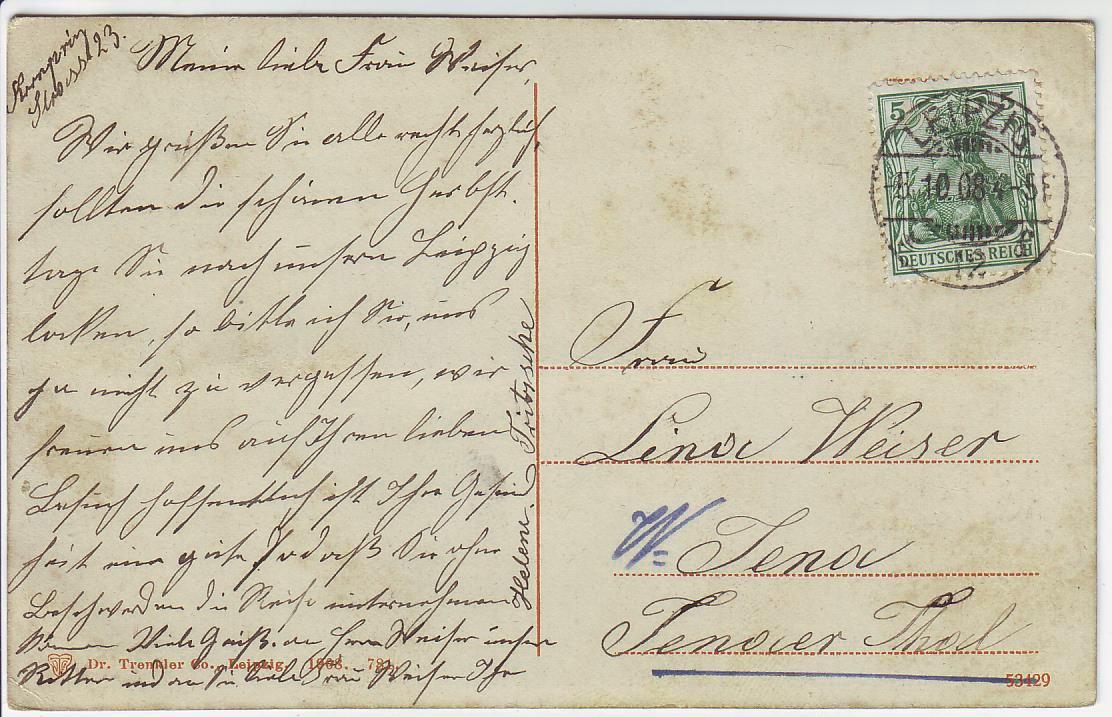 Kronprinz
Strasse 23.
Meine liebe Frau Weiser,
Wir grüßen Sie alle recht herzlich,
sollten die schönen Herbst-
tage Sie nach unserm Leipzig
locken, so bitte ich Sie, uns
ja nicht zu vergessen, wir
freuen uns auf Ihren lieben
Besuch hoffentlich ist Ihre Gesund
heit eine gute, so daß Sie ohne
Beschwerden die Reise unternehmen
können Viele Grüße an Herrn Weiser
und an Sie liebe Frau Weiser Ihre
Helene Fritzsche
LEIPZIG
10.08 4-5
5 5
DEUTSCHES REICH
Frau
Lina Weiser
W=
Jena
Jenaer Thal
Dr. Trenkler Co., Leipzig. 1908. 721.
53429